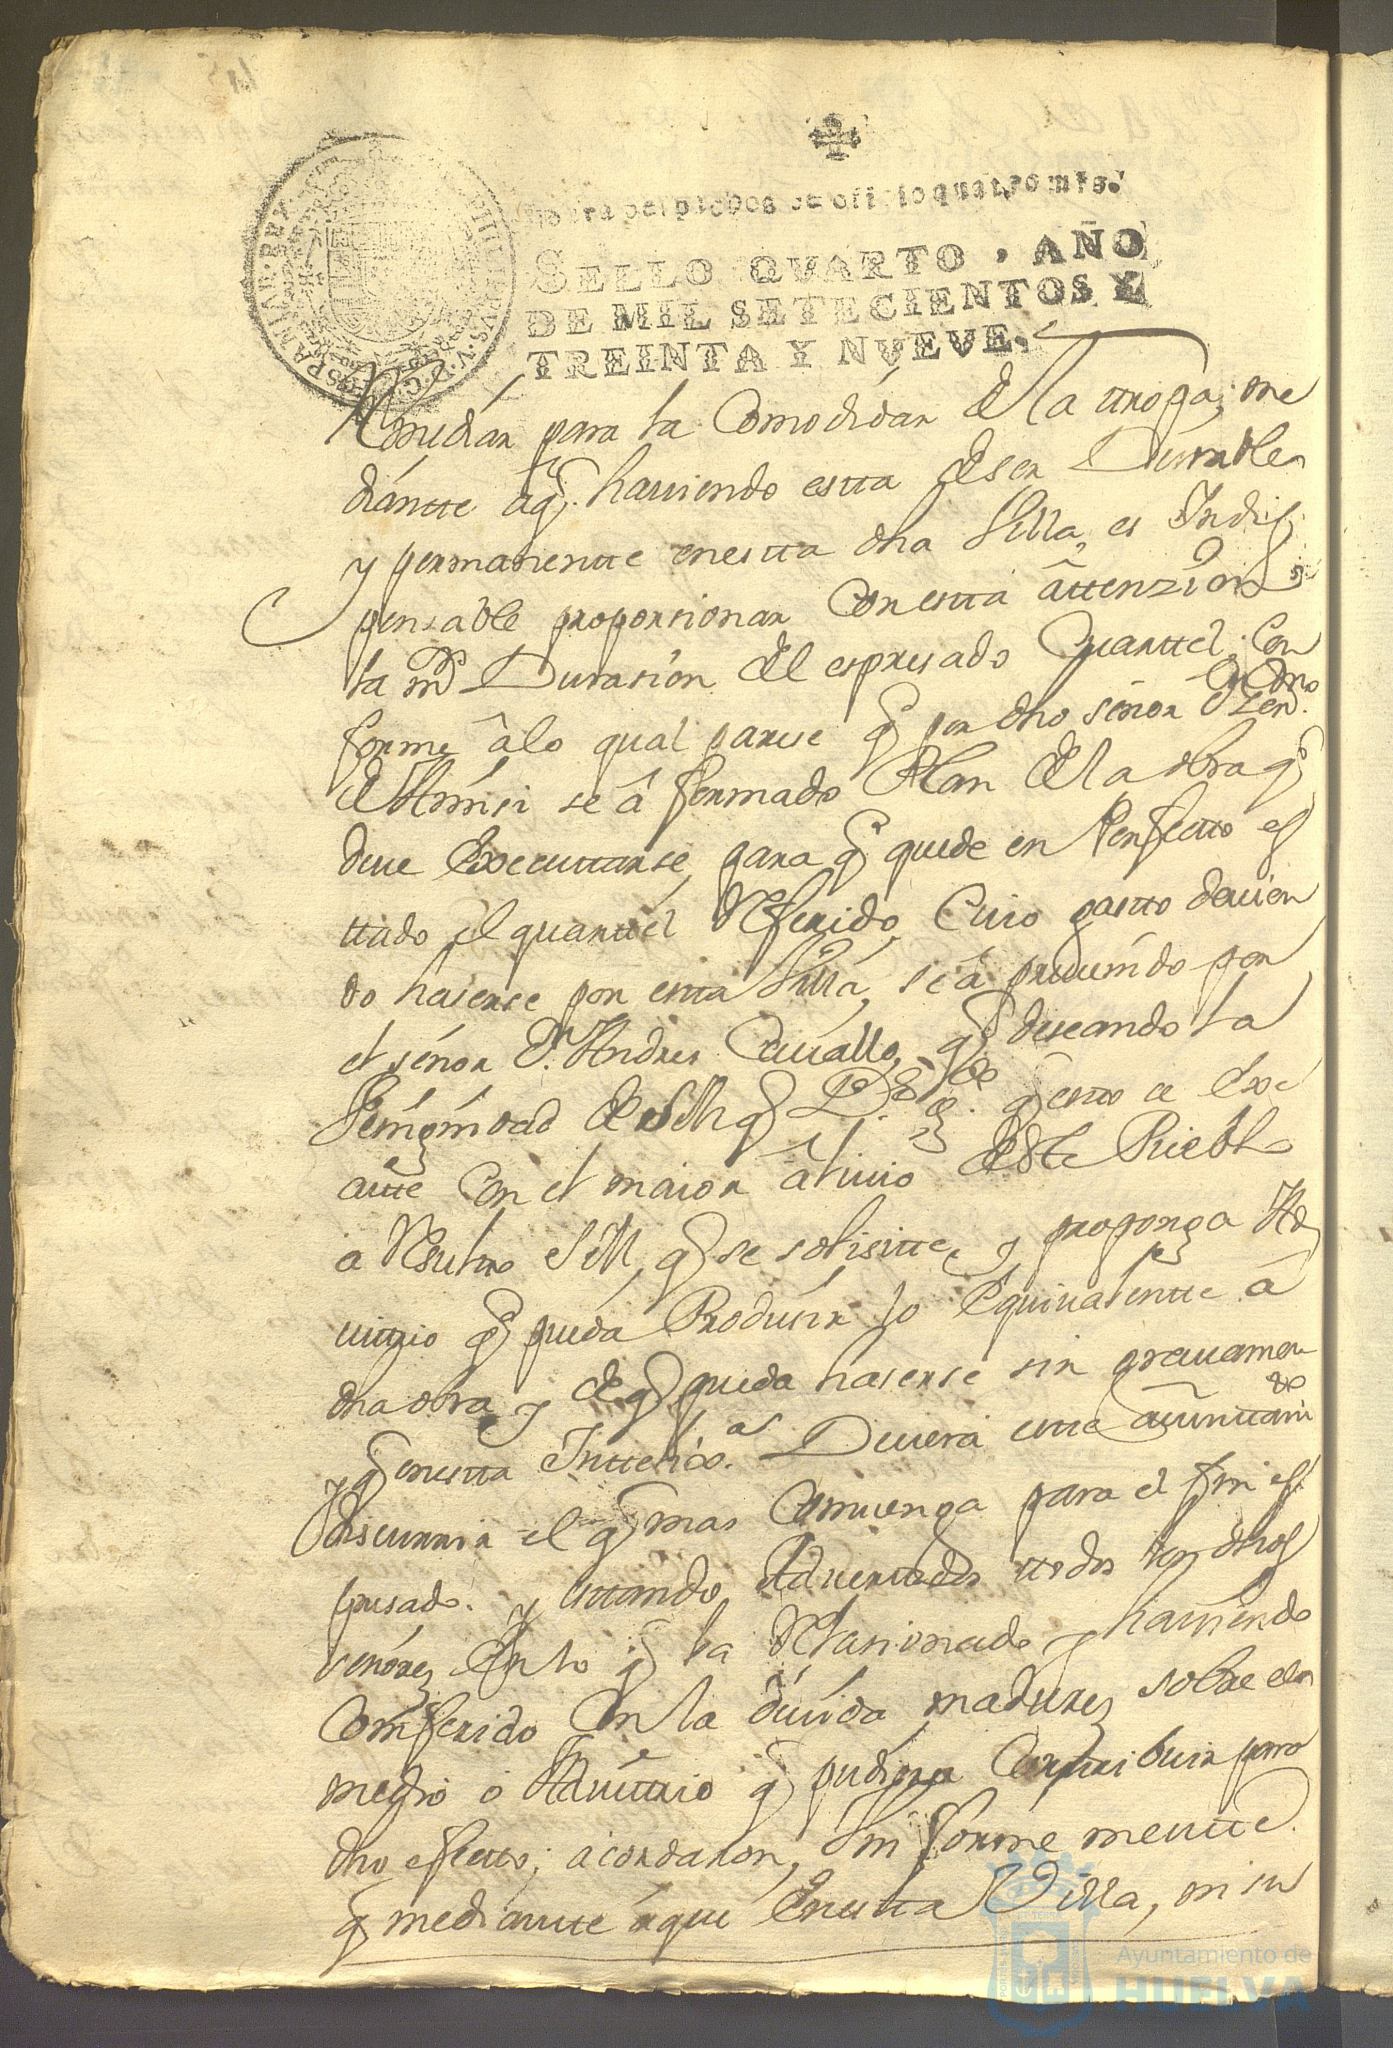 para despachos de oficio quatro mrs.
SELLO QVARTO, AÑO
DE MIL SETECIENTOS Y
TREINTA Y NVEVE.
PHILIPPUS V D G HISPANIAR REX
para la Comodidad de la tropa, me
diantte aq̃ haviendo estta de ser Durable
y permanentte en estta dha Villa, es Indis
pensable proporsionar Con estta âttenzion
la mr Durasion del espresado Quarttel; Con
forme âlo qual parese q̃ por dho señor
se â formado Plan de la obra q̃
deve Executtarse, para q̃ quede en Perfectto es
ttado el quarttel Referido, Cuio gastto devien
do haserse por estta Villa, se â prevenido por
el señor Dn. Andres Cavallo, q̃ deseando la
Benignidad de S M q̃ D.s g.de q̃ estto se Exe
cutte Con el maior âlivio de este Pueblo
a Resuelto S M, q̃ se solisitte, y proponga Ar
vittrio q̃ pueda Produsir lo Equivalentte â
dha obra y de q̃ pueda haserse sin gravamen
y q̃ en estta Intteligx.a Devera estte aiunttami.to
discurrir el q̃ mas Convenga para el fin es
presado. y esttando Adverttidos ttodos los dhos
señores En lo q̃ ba Relasionado y haviendo
Comferido Con la devida madurez sobre el
medio o Advittrio q̃ pudiera Conttribuir para
dho efectto; acordaron, Vniformementte
q̃ mediantte âque En estta Villa, ni su
Ayuntamiento de
HUELVA